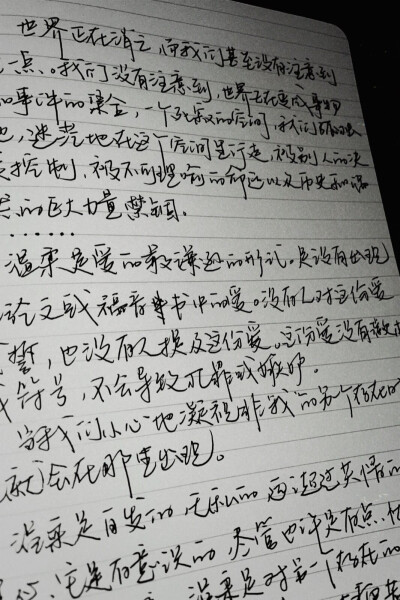 世界正在消亡,而我们甚至没有注意到
一点。我们没有注意到,世界正在变成事物
和事件的集合,一个死寂的空间,我们孤独
地,迷茫地在这个空间里行走,被别人的决
定控制,被不可理喻的命运以及历史和偶
然的巨大力量禁锢。
······
温柔是爱的最谦逊的形式。是没有出现
论文或福音书中的爱。没有人对这份爱
誓,也没有人提及这份爱。这份爱没有
符号,不会导致犯罪或嫉妒。
当我们小心地凝视非我的另个存在时
就会在那里出现。
温柔是自发的、无私的,远远超过共情的
它是有意识的,尽管也许是有点
温柔是对另一个存在的